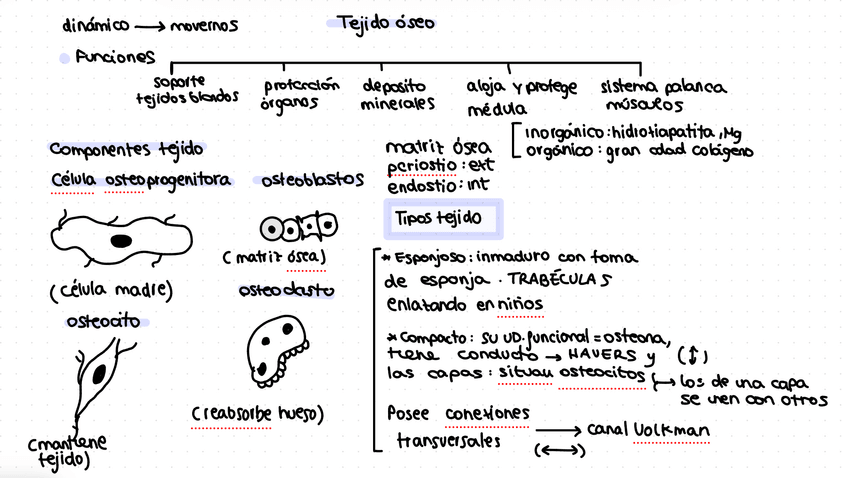 dinámico → movernos
Tejido óseo
Funciones
soporte
tejidos blandos
protección
órganos
deposito
minerales
aloja y protege
médula
sistema palanca
músculos
Componentes tejido
Célula osteoprogenitora
(célula madre)
osteoblastos
(matriz ósea)
osteocito
(mantiene
tejido)
osteoclasto
(reabsorbe hueso)
matriz ósea
inorgánico: hidroxiapatita, Mg
orgánico: gran cdad colágeno
periostio: ext
endostio: int
Tipos tejido
* Esponjoso: inmaduro con foma
de esponja. TRABÉCULAS
enlazando en niños
* Compacto: su UD. funcional = osteona,
tiene conducto → HAVERS y (↕)
las capas: situan osteocitos → los de una capa
se unen con otros
Posee conexiones
transversales → canal Volkman
(↔)